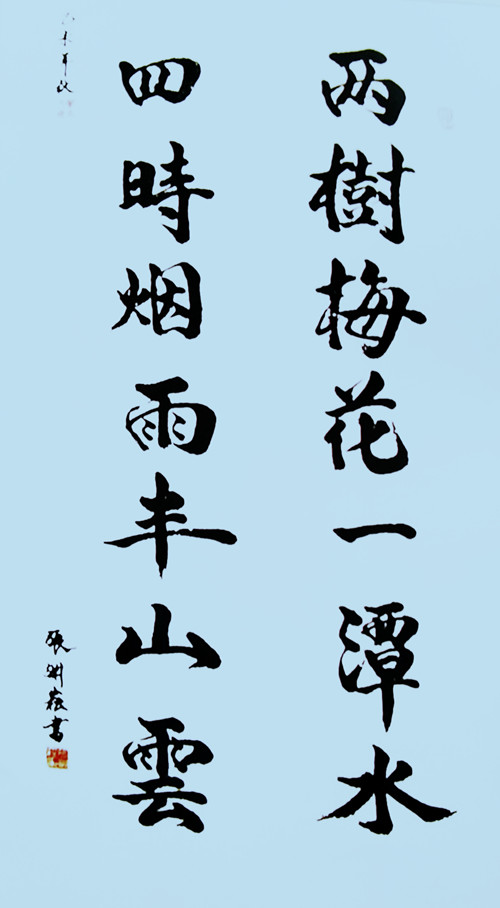 两樹梅花一潭水
四時烟雨半山雲
張書